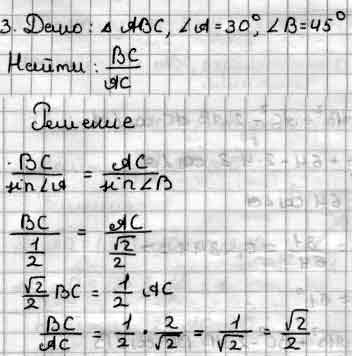 3. Дано: △ ABC, ∠A=30°, ∠B=45°
Найти: BC/AC
Решение
BC/sin∠A = AC/sin∠B
BC/(1/2) = AC/(√2/2)
√2/2 BC = 1/2 AC
BC/AC = 1/2 · 2/√2 = 1/√2 = √2/2